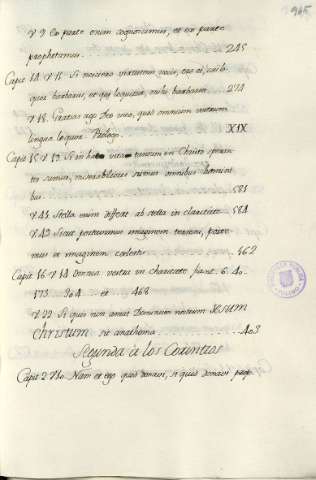 945
V 9 Ex parte enim cognoscimus, et ex parte
prophetamus. 245
Capit 14 V 11 Si nesciero virtutem vocis, ero ei, cui lo-
quor barbarus, et qui loquitur, mihi barbarus 274
V 18 Gratias ago Deo meo, quod omnium vestrum
lingua loquor. Prologo. XIX
Capit 15 V 19 Si in hac vita tantum in Christo speran-
tes sumus, miserabiliores sumus omnibus homini
bus. 581
V 41 Stella enim differt ab stella in claritate 584
V 49 Sicut portavimus imaginem terreni, porte-
mus et imaginem coelestis 162
Capit 16 V 14 Omnia vestra in charitate fiant. 6. 40.
173 304 et 468
V 22 Si quis non amat Dominum nostrum Jesum
Christum sit anathema. 403
Segunda à los Corintios
Capit 2 V 10 Nam et ego quod donavi, si quid donavi prop